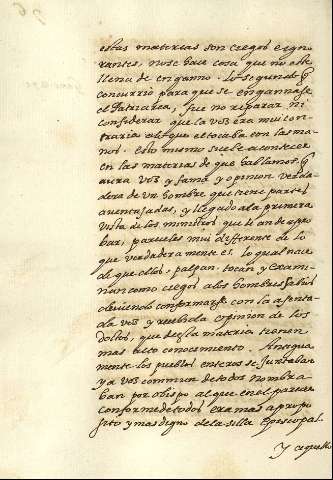 estas materias son ciegos e igno
rantes, no se hace cosa que no este
llena de engaño. Lo segundo q̃
concurrio para que se engañase
el Patriarca, fue no reparar ni
considerar que la voz era mui con
traria al que el tocaba con las ma
nos. Esto mismo suele acontecer
en las materias de que hablamos q̃
aura voz y fama y opinion verda
dera de un hombre que tiene partes
auentajadas, y llegado a la primera
vista de los ministros que le an de apro
bar, pareceles mui differente de lo
que verdaderamente es. lo qual nace
de que ellos palpan tocan y exami
nan como ciegos a los hombres sabios
deviendo conformarse con la asenta
da voz y recebida opinion de los
doctos, que desta materia tienen
mas alto conocimiento. Antigua
mente los pueblos enteros se juntaban
y a voz commun de todos nombra
ban por obispo al que en el parecer
conforme de todos era mas a propo
sito y mas digno de la silla Episcopal.
Y aquello